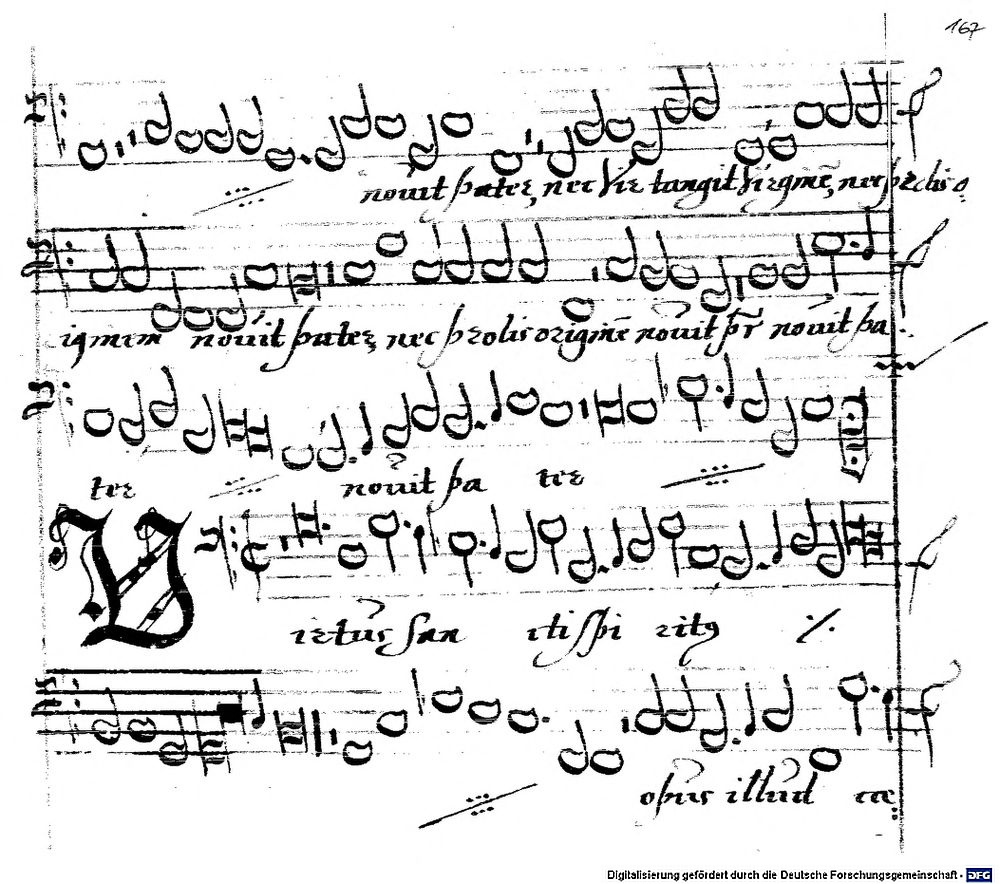 167
novit pater, nec vir tangit virginẽ, nec prolis o
iginem novit pater, nec prolis originẽ novit pr̃ novit pa
ter novit pa ter
Virtus san cti spi ritꝯ ·/·
opus illud cæ
Digitalisierung gefördert durch die Deutsche Forschungsgemeinschaft - DFG